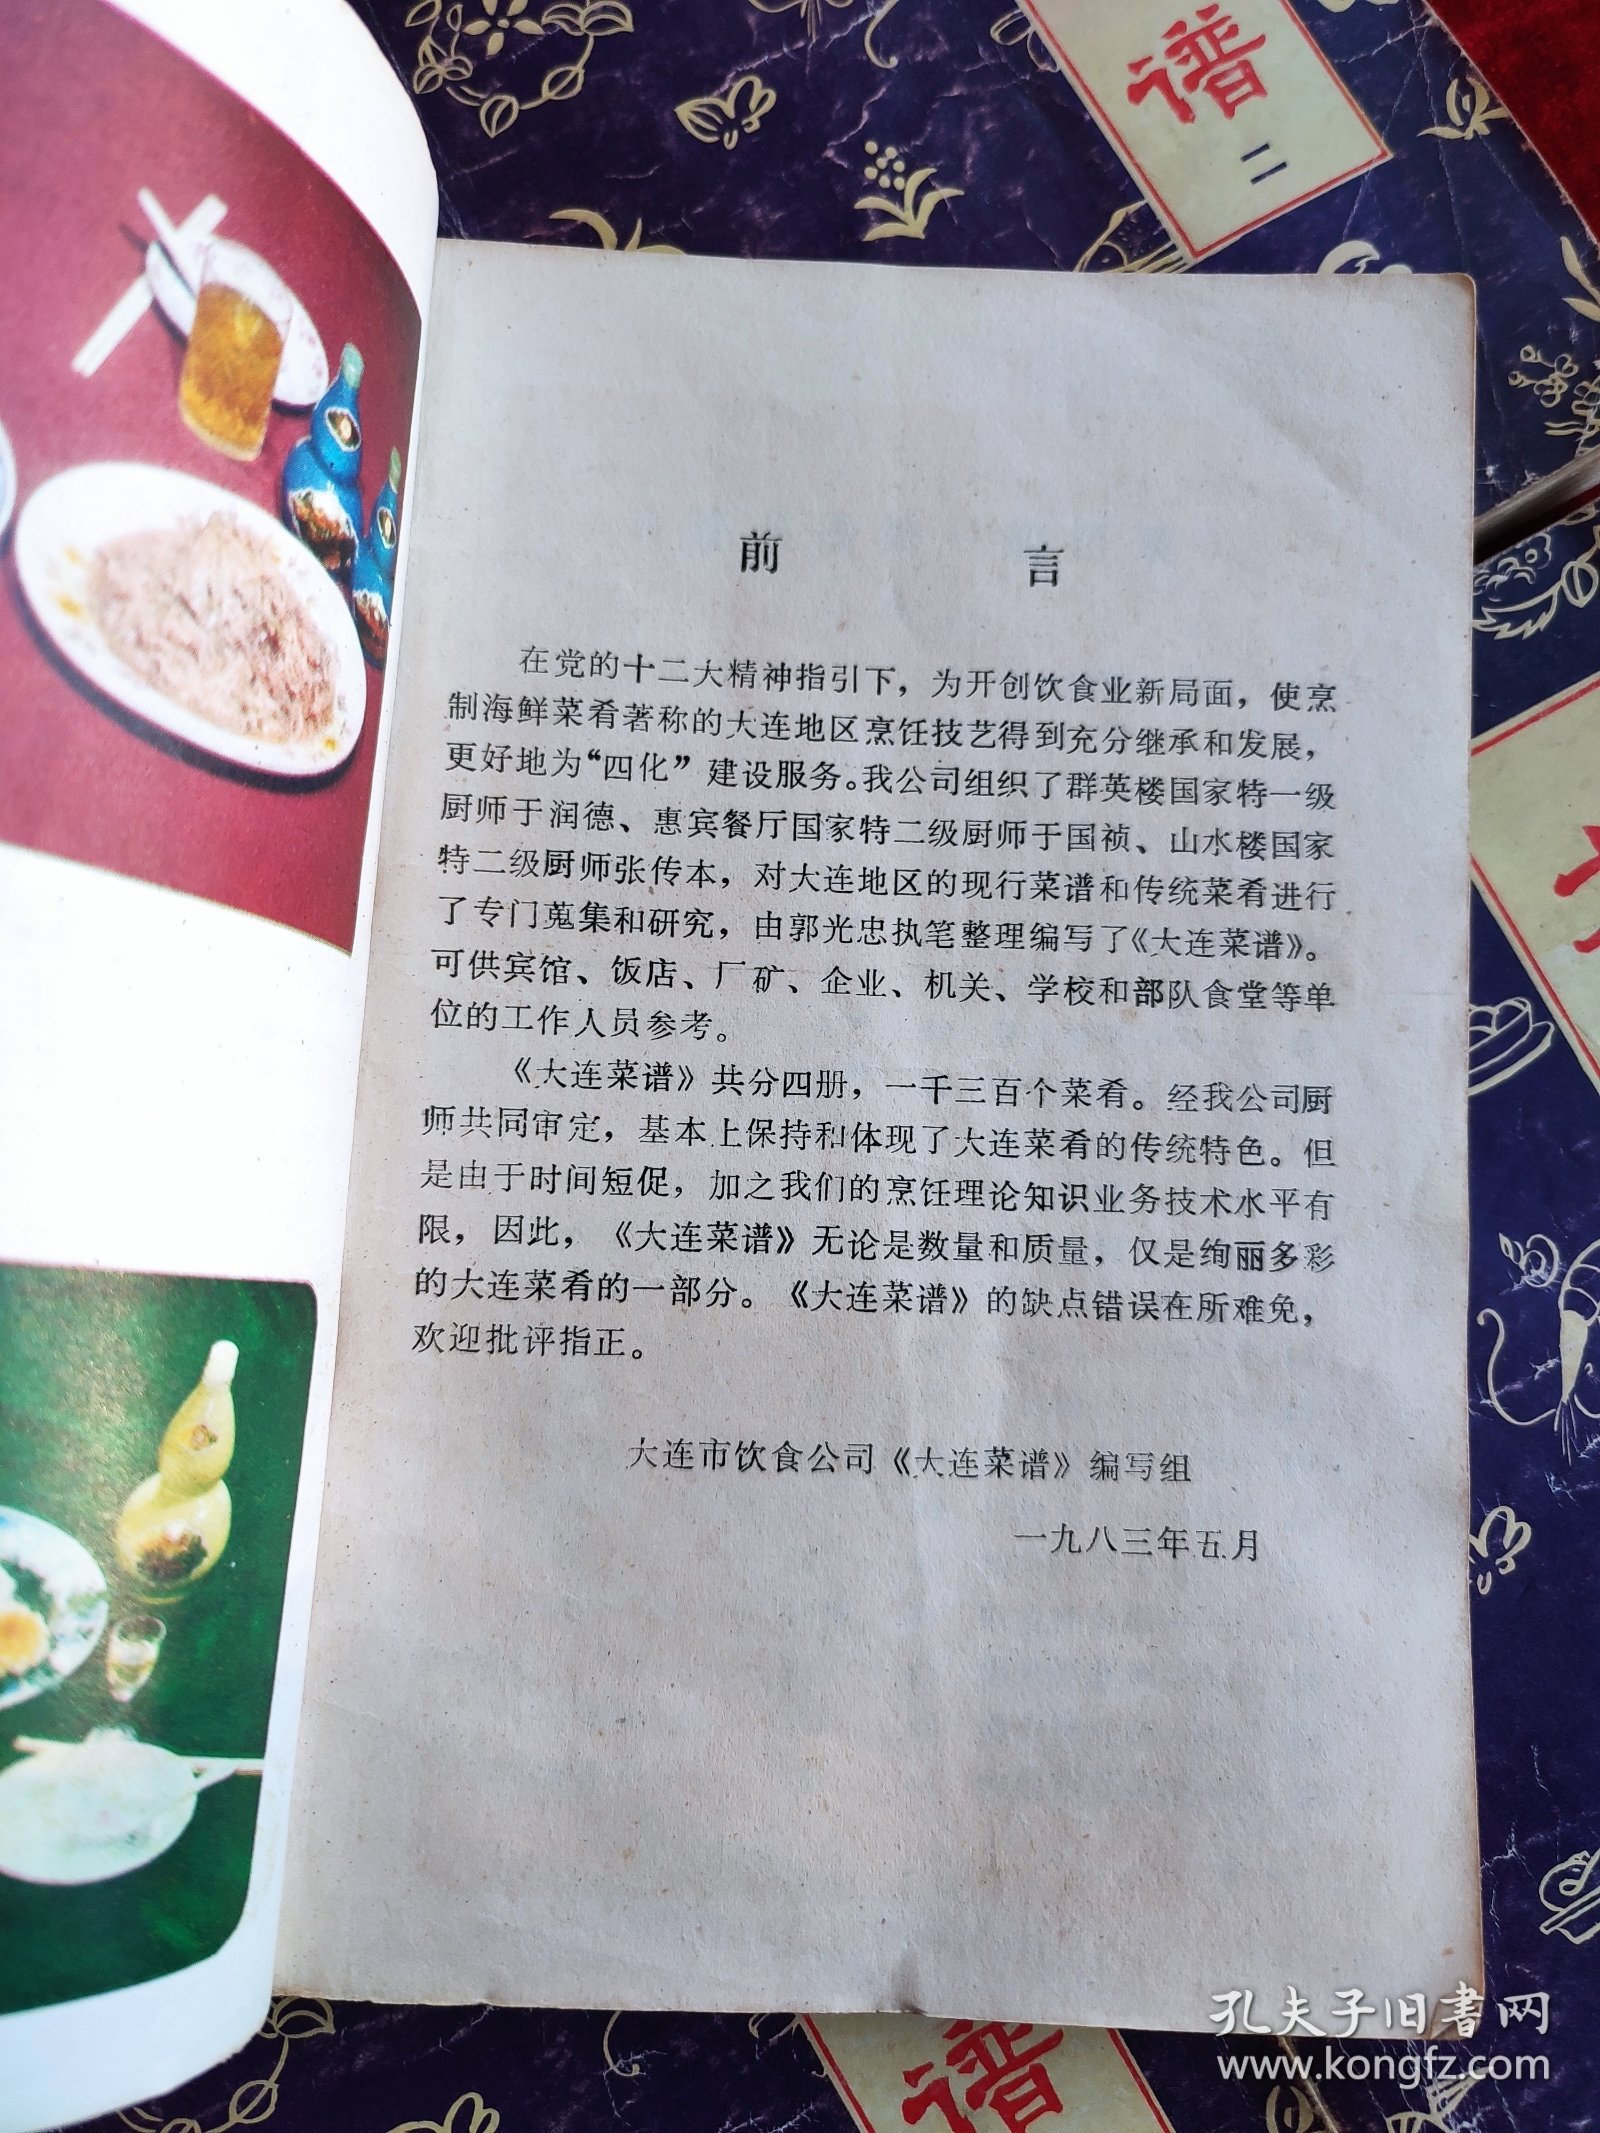 谱
二
前言
在党的十二大精神指引下，为开创饮食业新局面，使烹
制海鲜菜肴著称的大连地区烹饪技艺得到充分继承和发展，
更好地为“四化”建设服务。我公司组织了群英楼国家特一级
厨师于润德、惠宾餐厅国家特二级厨师于国祯、山水楼国家
特二级厨师张传本，对大连地区的现行菜谱和传统菜肴进行
了专门蒐集和研究，由郭光忠执笔整理编写了《大连菜谱》。
可供宾馆、饭店、厂矿、企业、机关、学校和部队食堂等单
位的工作人员参考。
《大连菜谱》共分四册，一千三百个菜肴。经我公司厨
师共同审定，基本上保持和体现了大连菜肴的传统特色。但
是由于时间短促，加之我们的烹饪理论知识业务技术水平有
限，因此，《大连菜谱》无论是数量和质量，仅是绚丽多彩
的大连菜肴的一部分。《大连菜谱》的缺点错误在所难免，
欢迎批评指正。
大连市饮食公司《大连菜谱》编写组
一九八三年五月
谱
孔夫子旧书网
www.kongfz.com